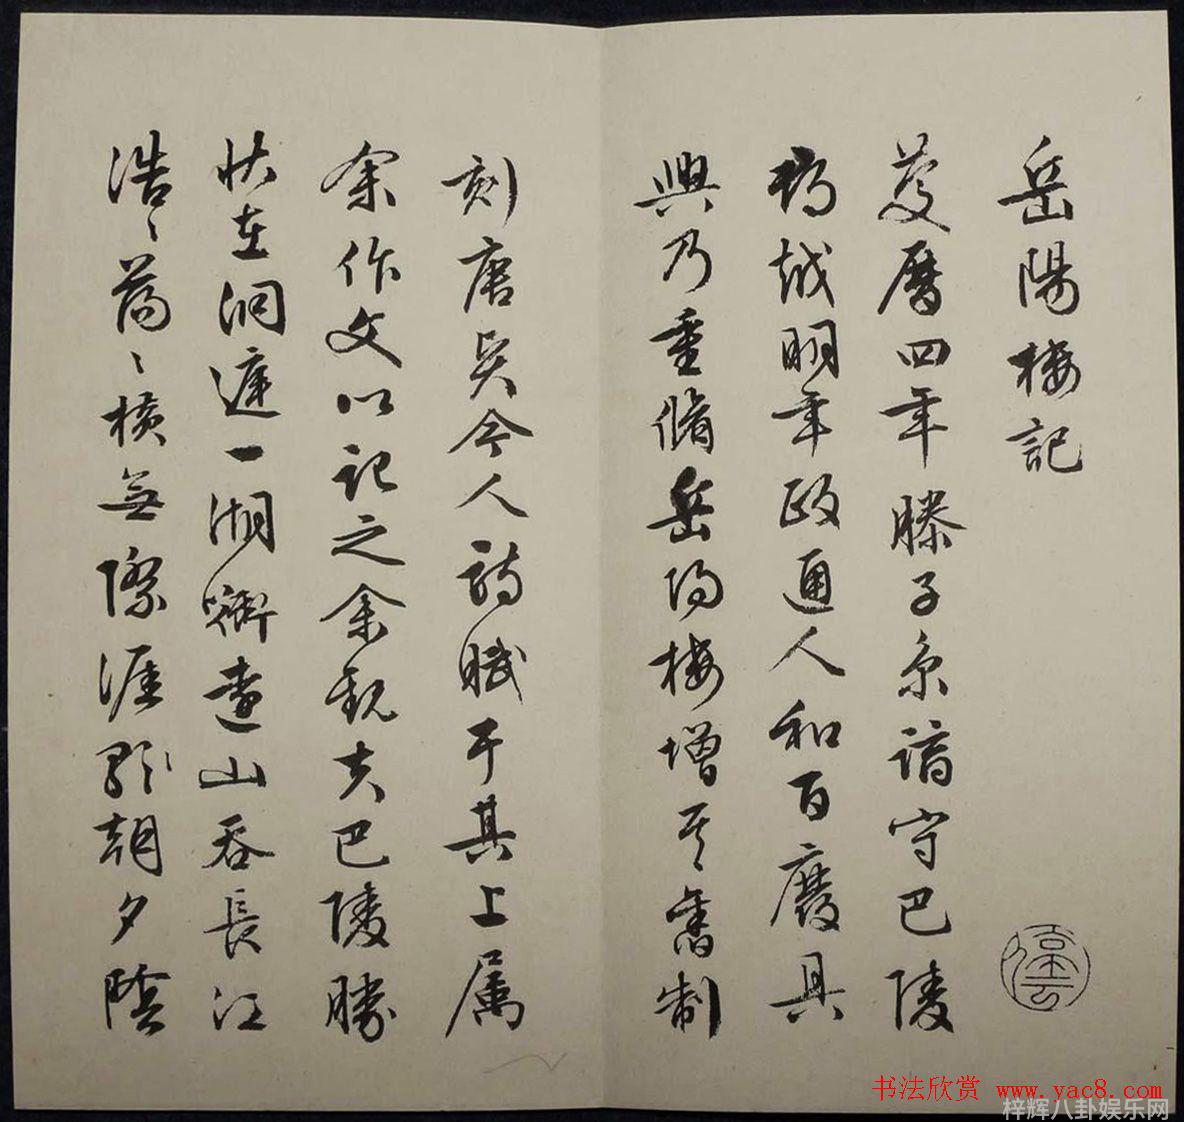 岳陽樓記
慶曆四年滕子京謫守巴陵
郡越明年政通人和百廢具
興乃重脩岳陽樓增其舊制
刻唐賢今人詩賦于其上属
余作文以記之余觀夫巴陵勝
狀在洞庭一湖銜遠山吞長江
浩〻蕩〻橫無際涯暉朝夕陰
书法欣赏 www.yac8.com
梓辉八卦娱乐网